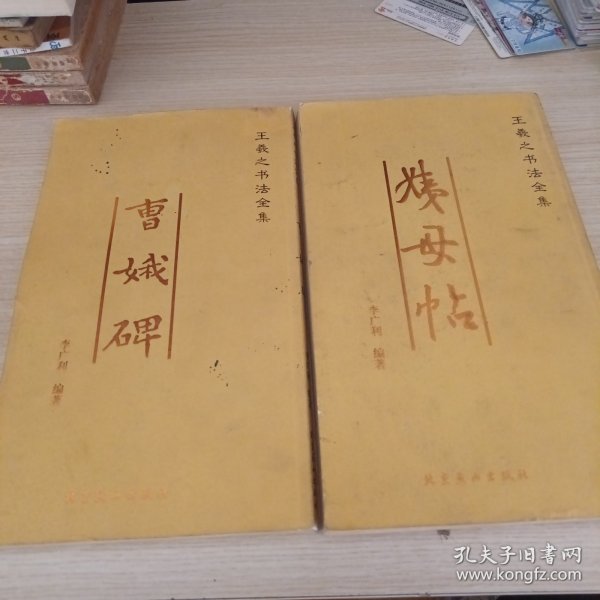 王羲之书法全集
曹娥碑
李广利 编著
王羲之书法全集
姨母帖
李广利 编著
北京燕山出版社
孔夫子旧书网
www.kongfz.com